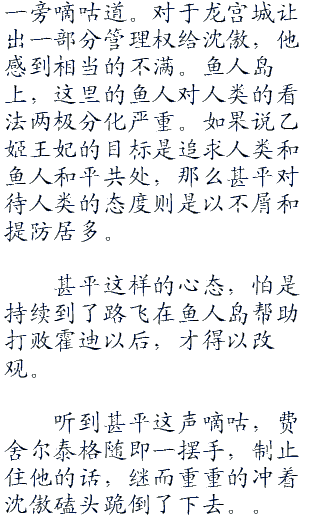 一旁嘀咕道。对于龙宫城让
出一部分管理权给沈傲，他
感到相当的不满。鱼人岛
上，这里的鱼人对人类的看
法两极分化严重。如果说乙
姬王妃的目标是追求人类和
鱼人和平共处，那么甚平对
待人类的态度则是以不屑和
提防居多。
甚平这样的心态，怕是
持续到了路飞在鱼人岛帮助
打败霍迪以后，才得以改
观。
听到甚平这声嘀咕，费
舍尔泰格随即一摆手，制止
住他的话，继而重重的冲着
沈傲磕头跪倒了下去。。